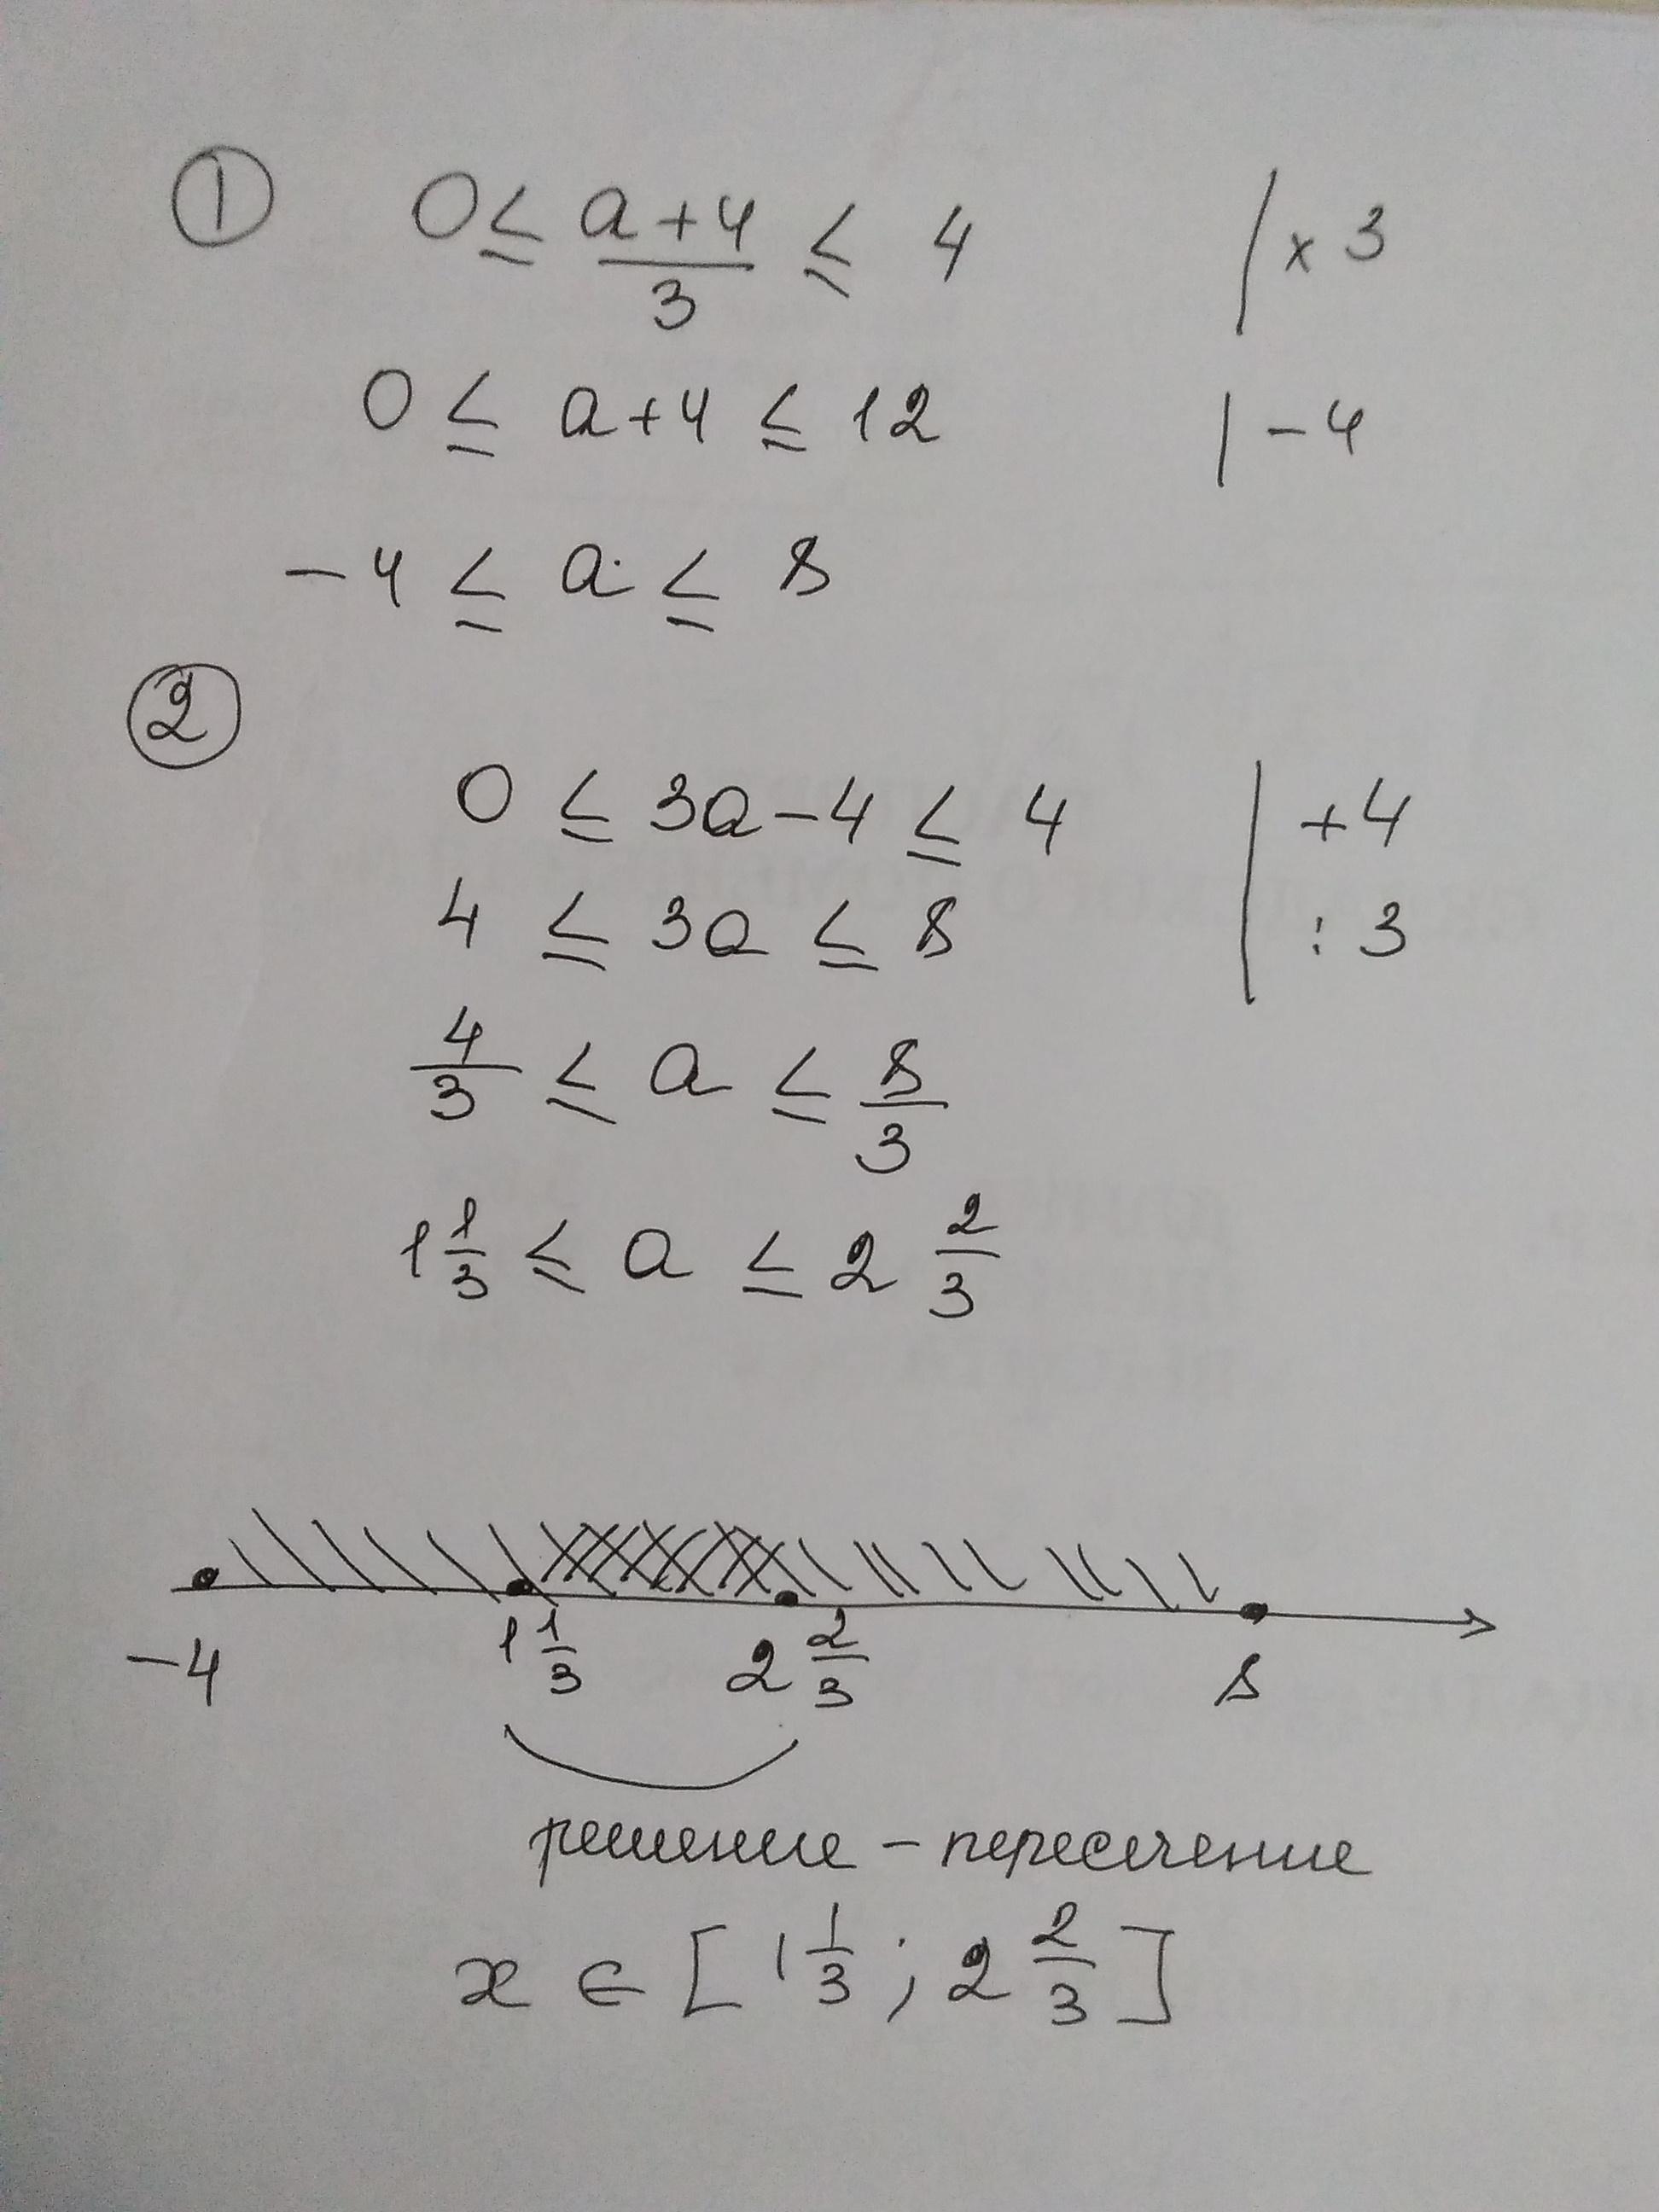 ① 0 ≤ (a+4)/3 ≤ 4 | × 3
0 ≤ a+4 ≤ 12 | −4
−4 ≤ a ≤ 8
②
0 ≤ 3a−4 ≤ 4 | +4
4 ≤ 3a ≤ 8 | : 3
4/3 ≤ a ≤ 8/3
1 1/3 ≤ a ≤ 2 2/3
−4 1 1/3 2 2/3 8
решение – пересечение
x ∈ [1 1/3 ; 2 2/3]